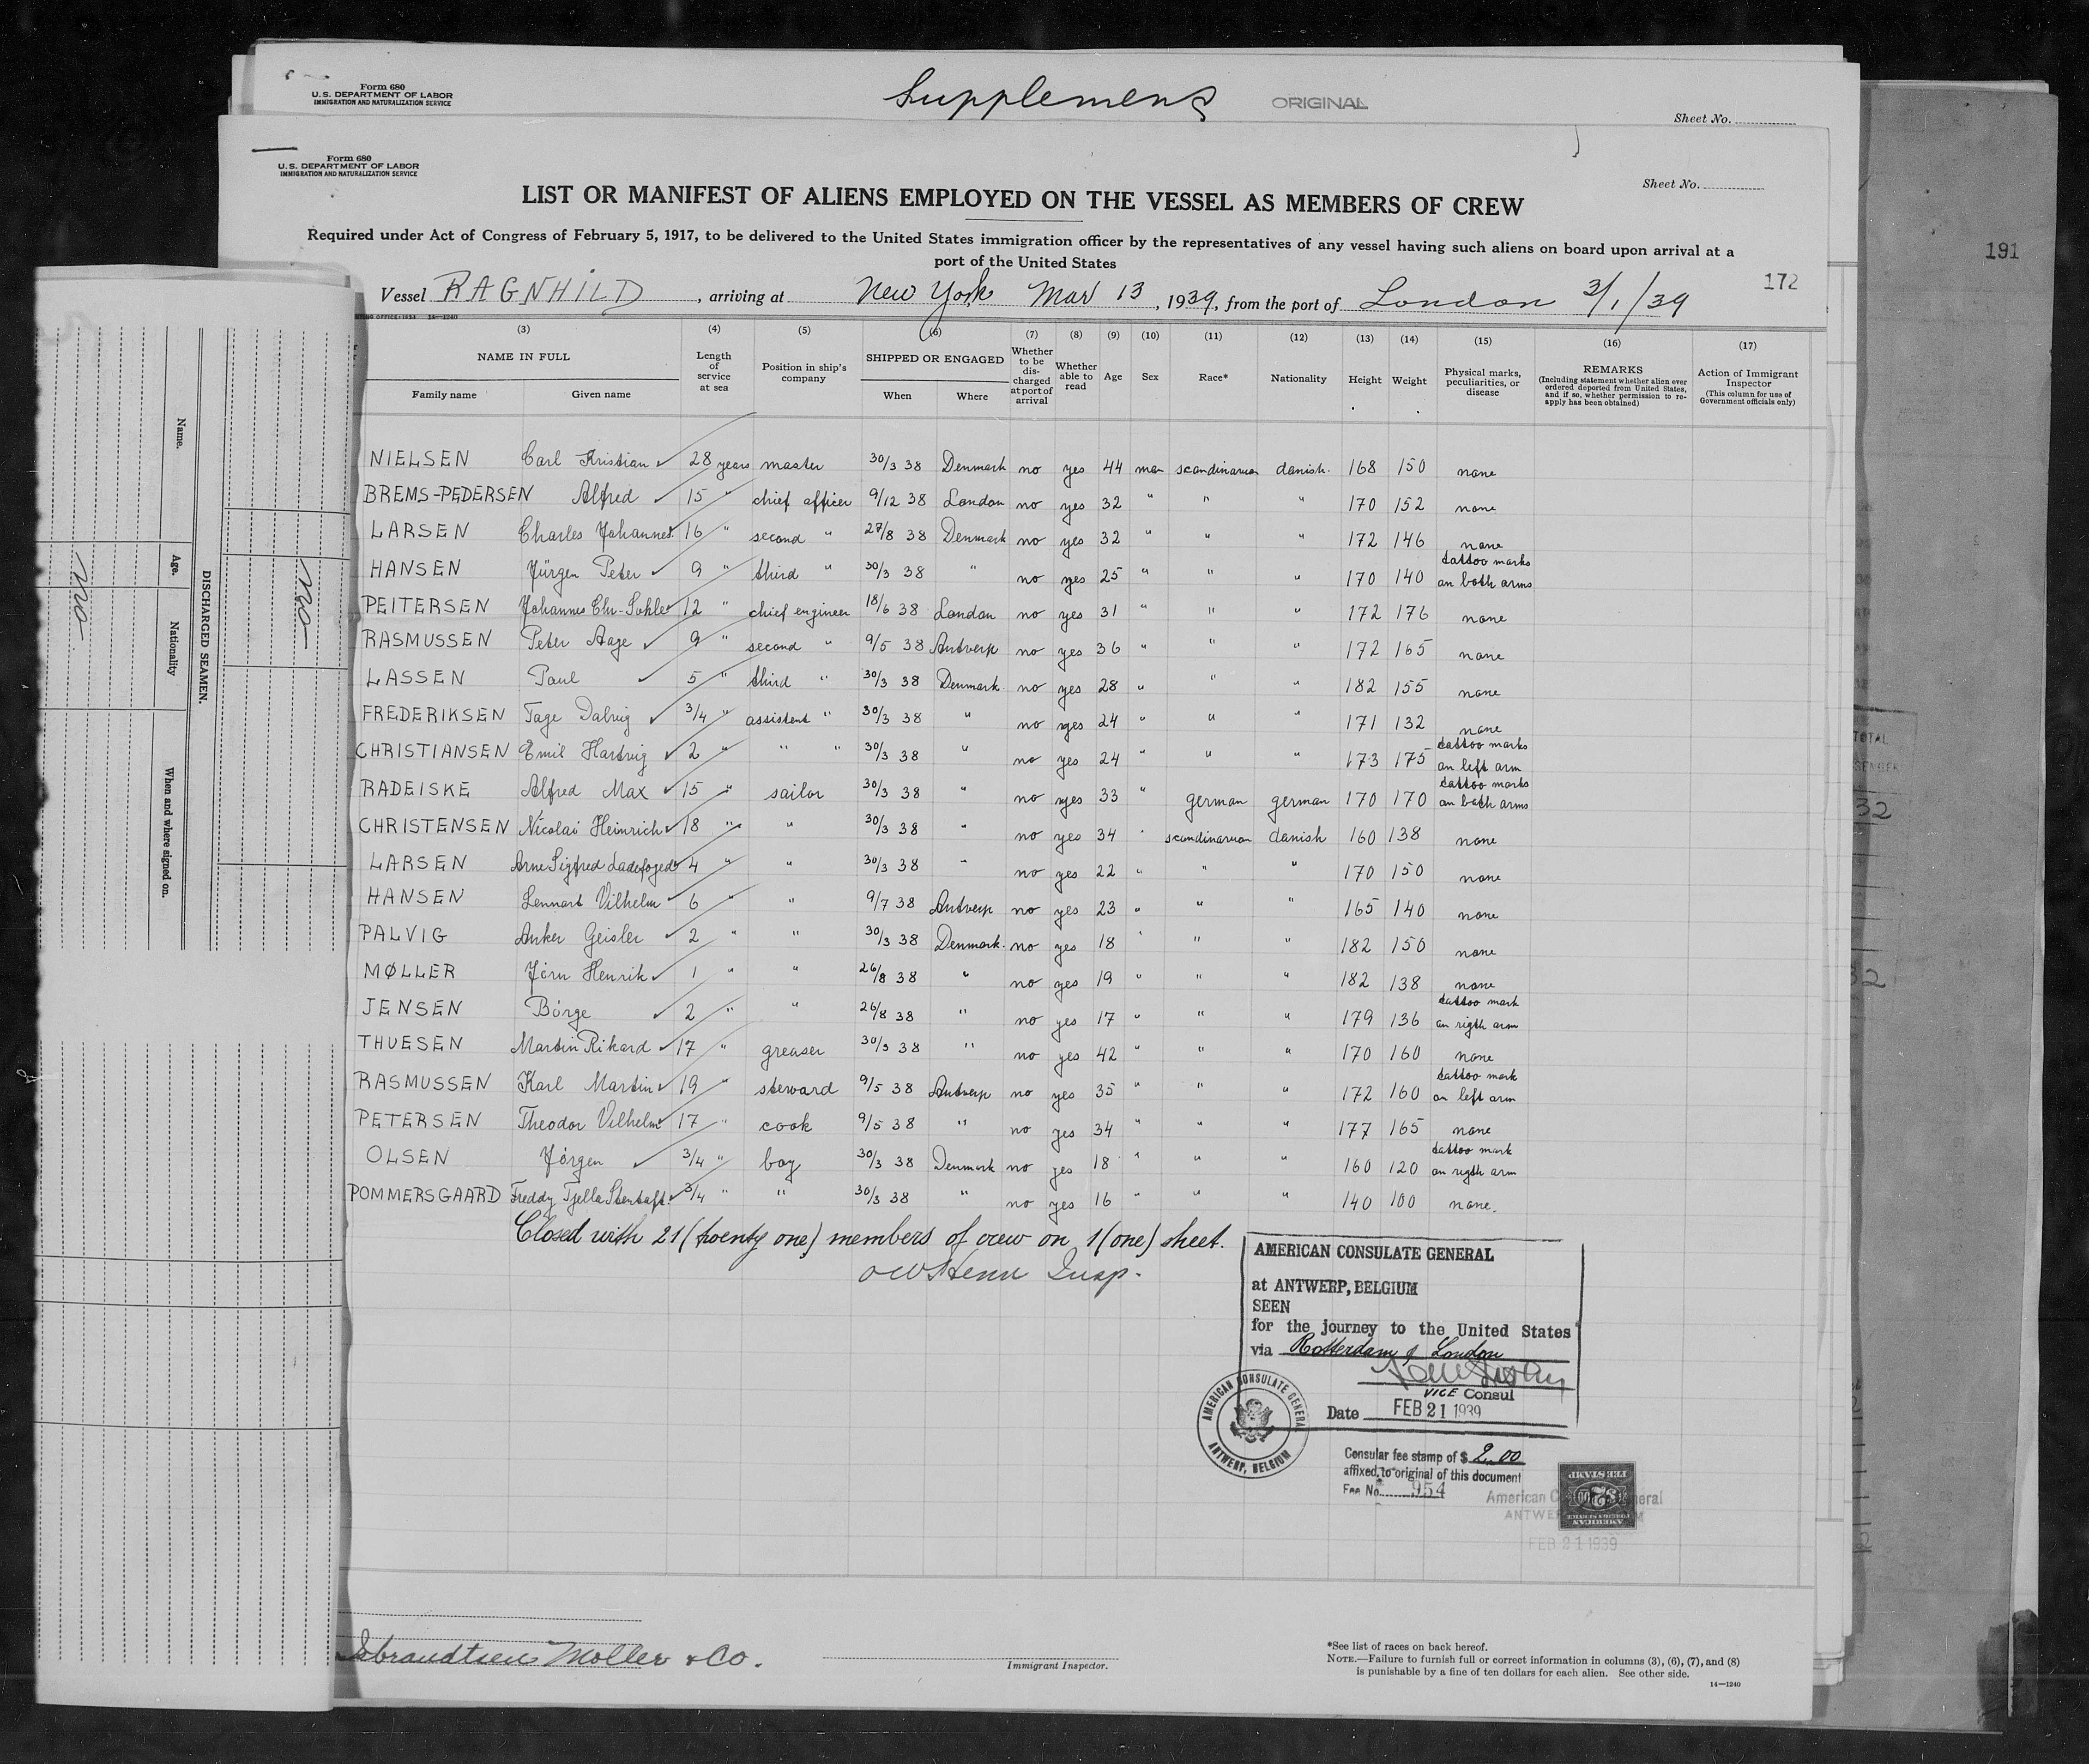 Form 680
U.S. DEPARTMENT OF LABOR
IMMIGRATION AND NATURALIZATION SERVICE
Supplement
ORIGINAL
Sheet No.
Form 680
U.S. DEPARTMENT OF LABOR
IMMIGRATION AND NATURALIZATION SERVICE
Sheet No.
LIST OR MANIFEST OF ALIENS EMPLOYED ON THE VESSEL AS MEMBERS OF CREW
Required under Act of Congress of February 5, 1917, to be delivered to the United States immigration officer by the representatives of any vessel having such aliens on board upon arrival at a
port of the United States
191
172
Vessel RAGNHILD, arriving at New York Mar 13, 1939, from the port of London 3/1/39
14—1240
(3) (4) (5) (6) (7) (8) (9) (10) (11) (12) (13) (14) (15) (16) (17)
NAME IN FULL
Family name
Given name
Length of service at sea
Position in ship's company
SHIPPED OR ENGAGED
When
Where
Whether to be discharged at port of arrival
Whether able to read
Age
Sex
Race*
Nationality
Height
Weight
Physical marks, peculiarities, or disease
REMARKS
(Including statement whether alien ever ordered deported from United States, and if so, whether permission to reapply has been obtained)
Action of Immigrant Inspector
(This column for use of Government officials only)
NIELSEN Carl Kristian 28 years master 30/3 38 Denmark no yes 44 man scandinavian danish. 168 150 none
BREMS-PEDERSEN Alfred 15 " chief officer 9/12 38 London no yes 32 " " " 170 152 none
LARSEN Charles Johannes 16 " second " 27/8 38 Denmark no yes 32 " " " 172 146 none
HANSEN Jürgen Peter 9 " third " 30/3 38 " no yes 25 " " " 170 140 tattoo marks on both arms
PEITERSEN Johannes Chr- 12 " chief engineer 18/6 38 London no yes 31 " " " 172 176 none
RASMUSSEN Peter Aage 9 " second " 9/5 38 Antverp no yes 36 " " " 172 165 none
LASSEN Paul 5 " third " 30/3 38 Denmark. no yes 28 " " " 182 155 none
FREDERIKSEN Tage Dalvig 3/4 " assistent " 30/3 38 " no yes 24 " " " 171 132 none
CHRISTIANSEN Emil Hartvig 2 " " " 30/3 38 " no yes 24 " " " 173 175 tattoo marks on left arm
RADEISKE Alfred Max 15 " sailor 30/3 38 " no yes 33 " german german 170 170 tattoo marks on both arms
CHRISTENSEN Nicolai Heinrich 18 " " 30/3 38 " no yes 34 " scandinavian danish 160 138 none
LARSEN Arne Sigfred Ladefoged 4 " " 30/3 38 " no yes 22 " " " 170 150 none
HANSEN Lennart Vilhelm 6 " " 9/7 38 Antverp no yes 23 " " " 165 140 none
PALVIG Anker Geisler 2 " " 30/3 38 Denmark. no yes 18 " " " 182 150 none
MØLLER Jörn Henrik 1 " " 26/8 38 " no yes 19 " " " 182 138 none
JENSEN Börge 2 " " 26/8 38 " no yes 17 " " " 179 136 tattoo mark on rigth arm
THUESEN Martin Rikard 17 " greaser 30/3 38 " no yes 42 " " " 170 160 none
RASMUSSEN Karl Martin 19 " steward 9/5 38 Antverp no yes 35 " " " 172 160 tattoo mark on left arm
PETERSEN Theodor Vilhelm 17 " cook 9/5 38 " no yes 34 " " " 177 165 none
OLSEN Jörgen 3/4 " boy 30/3 38 Denmark no yes 18 " " " 160 120 tattoo mark on rigth arm
POMMERSGAARD Freddy 3/4 " " 30/3 38 " no yes 16 " " " 140 100 none.
Closed with 21 (twenty one) members of crew on 1 (one) sheet.
Insp.
AMERICAN CONSULATE GENERAL
at ANTWERP, BELGIUM
SEEN
for the journey to the United States
via Rotterdam & London
VICE Consul
Date FEB 21 1939
AMERICAN CONSULATE GENERAL
ANTWERP, BELGIUM
Consular fee stamp of $ 2.00
affixed to original of this document
Fee No. 954
American Consulate General
ANTWERP, BELGIUM
FEB 21 1939
AMERICAN
FEE STAMP
$2.00
Isbrandtsen Moller & Co.
Immigrant Inspector.
*See list of races on back hereof.
NOTE.—Failure to furnish full or correct information in columns (3), (6), (7), and (8)
is punishable by a fine of ten dollars for each alien. See other side.
14—1240
DISCHARGED SEAMEN.
Name.
Age.
Nationality
When and where signed on.
no
no